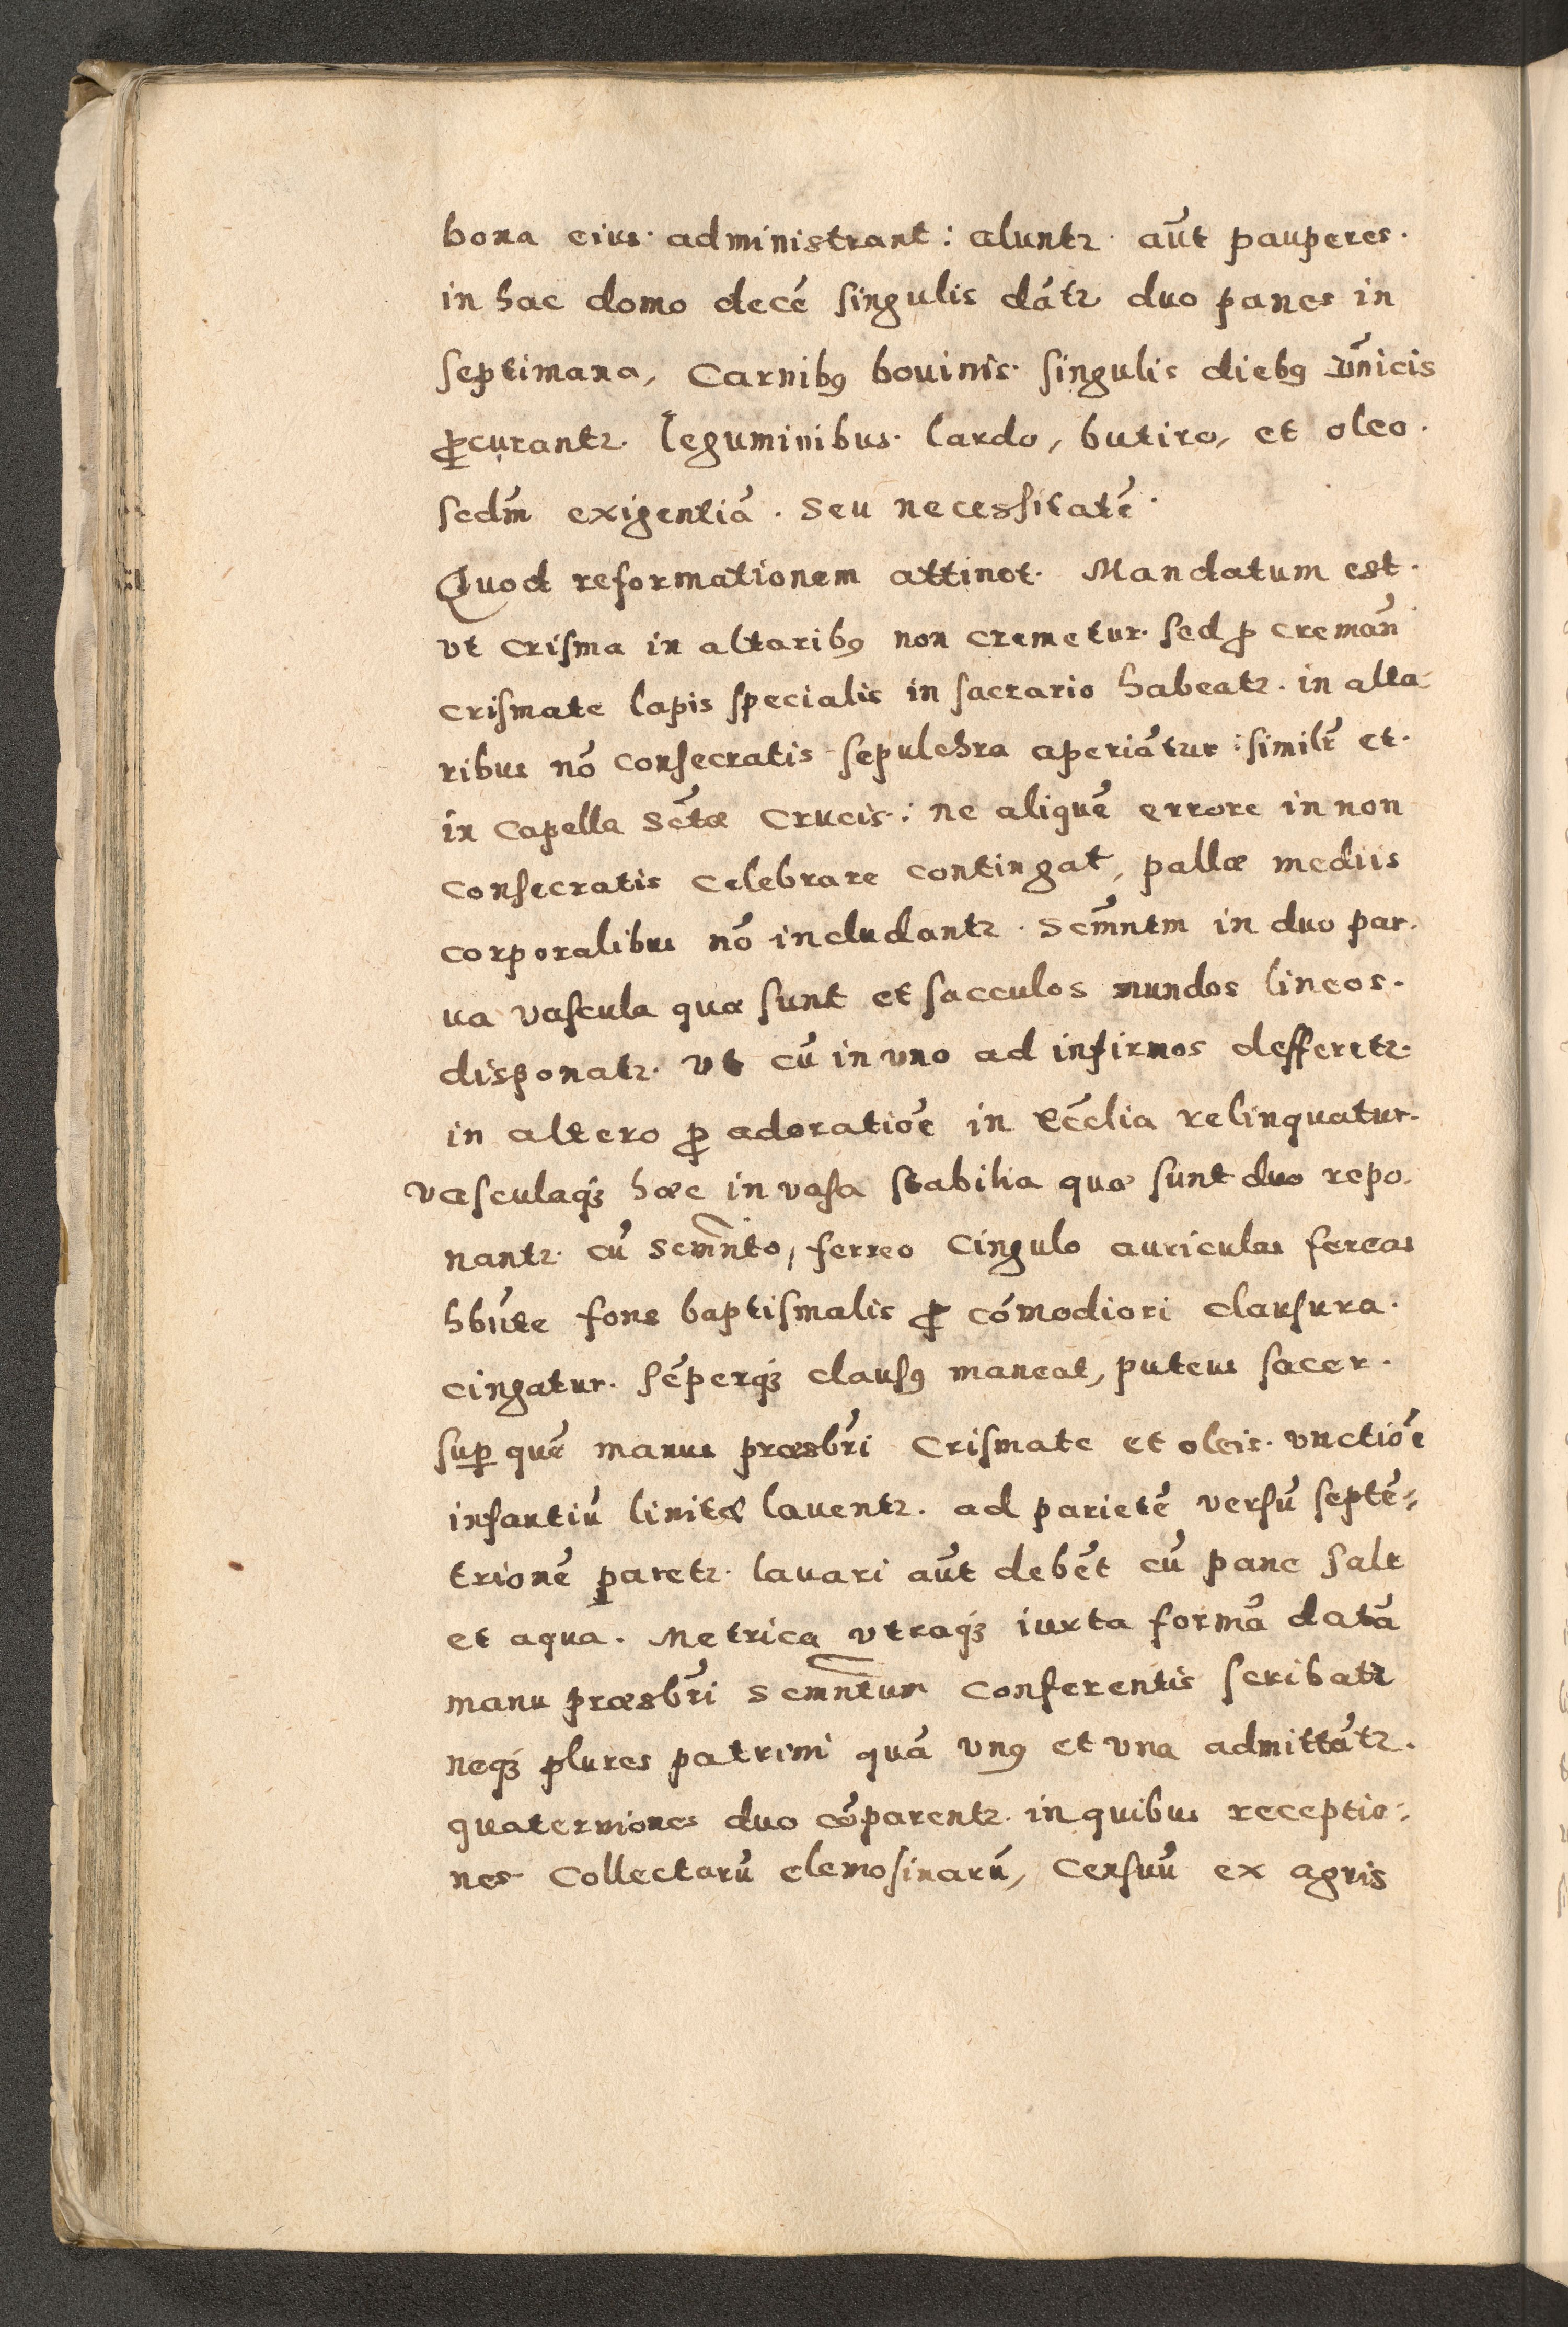 bona eius· administrant: alunt᷑· aūt pauperes·
in hac domo decē singulis dāt᷑ duo panes in
septimana, Carnibꝯ bouinis· singulis diebꝯ Dn̄icis
ꝓcurant᷑· leguminibus· lardo, butiro, et oleo·
secdm̄ exigentiā · seu necessitatē·
Quod reformationem attinet· Mandatum est·
vt crisma in altaribꝯ non cremetur· sed ꝓ cremān
crismate lapis specialis in sacrario habeat᷑· in alta-
ribus nō consecratis sepulchra aperiātur: similr̄ et·
in Capella sctǣ Crucis·: ne aliquē errore in non
consecratis celebrare contingat, pallæ mediis
corporalibus nō includant᷑ · scm̄ntm in duo par-
ua vascula quæ sunt et sacculos mundos lineos·
disponat᷑· vt cū in vno ad infirmos defferet᷑·
in altero ꝓ adoratiōe in Eccl̄ia relinquatur·
vasculaqꝫ hæc in vasa stabilia quæ sunt duo repo-
nant᷑· cū scm̄nto, ferreo cingulo auriculas fereas
hbn̄te fons baptismalis ꝓ cōmodiori clausura·
cingatur· sēperqꝫ clausꝯ maneat, puteus sacer·
suꝑ quē manus præsbr̄i Crismate et oleis· vnctiōe
infantiū linitæ lauent᷑· ad parietē versū septē-
trionē paret᷑· lauari aūt debēt cū pane sale
et aqua · Metrica vtraqꝫ iuxta formā datā
manu præsbr̄i scm̄ntum conferentis scribat᷑
neqꝫ plures patrini quā vnꝯ et vna admittāt᷑·
quaterniones duo cōparent᷑· in quibus receptio-
nes Collectarū elemosinarū, Censuū ex agris